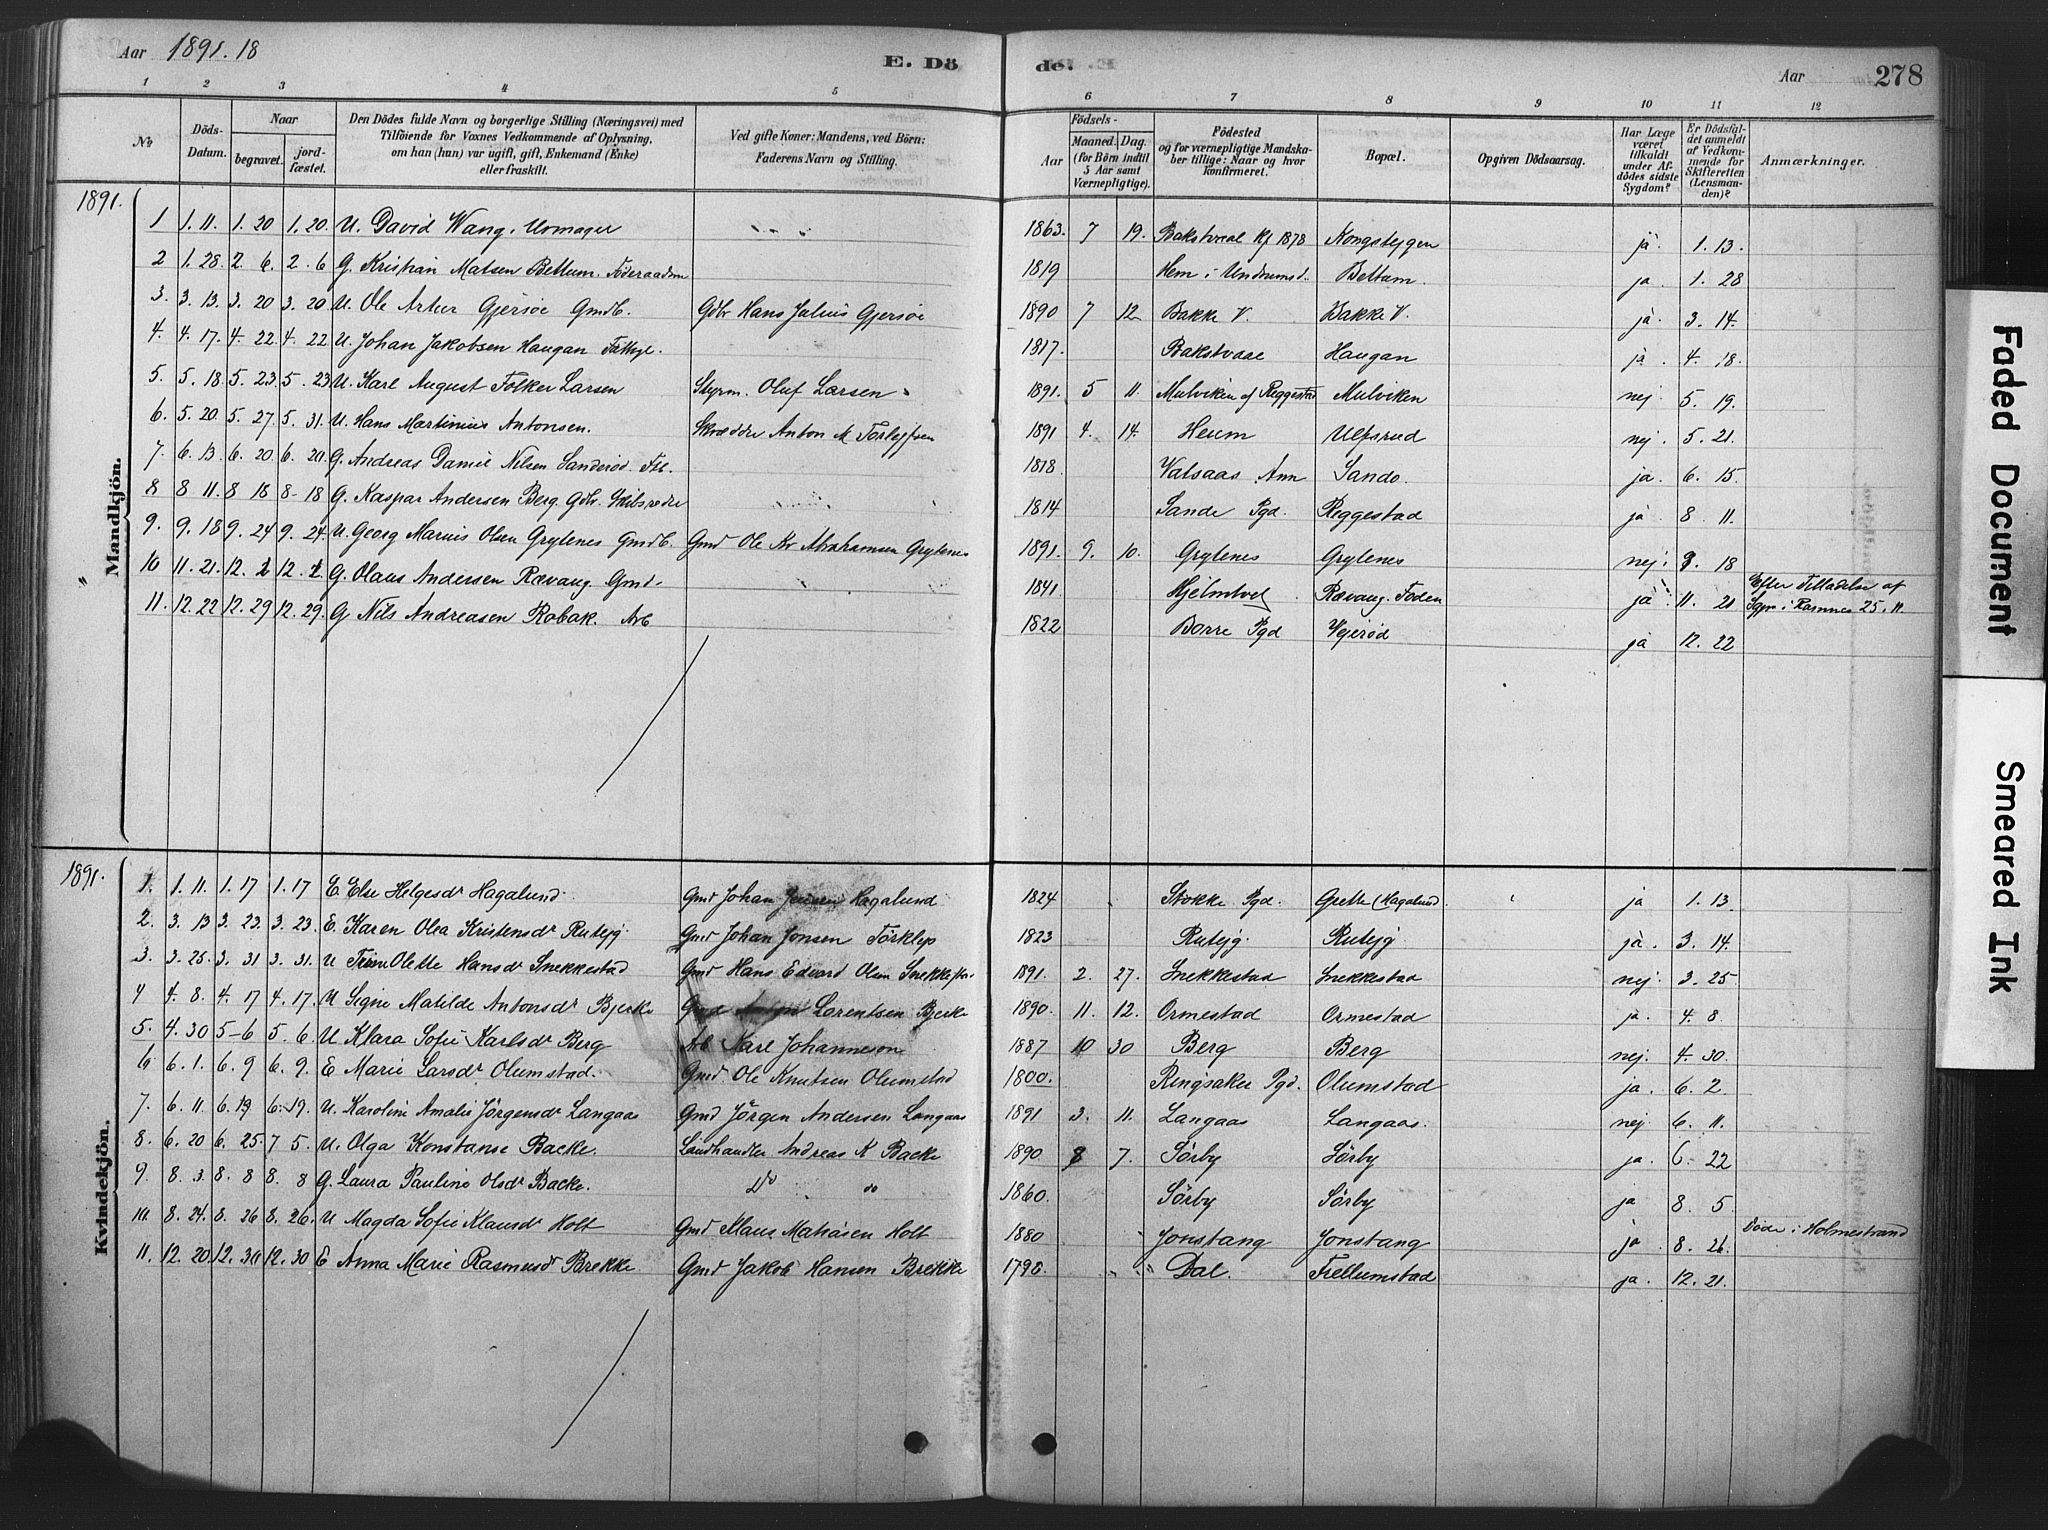 Aar 1891. 18
E. Dö
de.
Aar
278
1 2 3 4 5 6 7 8 9 10 11 12
No
Döds-Datum.
Naar
begravet.
jord-fæstet.
Den Dödes fulde Navn og borgerlige Stilling (Næringsvei) med
Tilföiende for Voxnes Vedkommende af Oplysning,
om han (hun) var ugift, gift, Enkemand (Enke)
eller fraskilt.
Ved gifte Koner: Mandens, ved Börn:
Faderens Navn og Stilling.
Födsels-
Aar
Maaned. Dag.
(for Börn indtil
5 Aar samt
Værnepligtige).
Födested
og for værnepligtige Mandska-
ber tillige: Naar og hvor
konfirmeret.
Bopæl.
Opgiven Dödsaarsag.
Har Læge
været
tilkaldt
under Af-
dödes sidste
Sygdom?
Er Dödsfal-
det anmeldt
af Vedkom-
mende for
Skifteretten
(Lensman-
den)?
Anmærkninger.
1891.
Mandkjön.
1 1. 11. 1. 20 1. 20. U. David Wang, Urmager 1863. 7 19. Kf 1878 ja. 1. 13.
2 1. 28. 2. 6. 2. 6 G. Kristian Matsen Bettum. Föderaadsm 1819 Hem i Undrumsd. Bettum. ja. 1. 28
3. 3. 13. 3. 20 3. 20. U. Ole Artur Gjersöe Gmdb. Gdbr Hans Julius Gjersöe 1890 7 12. Bakke V. Bakke V. ja. 3. 14.
4. 4. 17. 4. 22. 4. 22 U. Johan Jakobsen Haugan Fattige. 1817. Haugan ja. 4. 18.
5. 5. 18. 5. 23. 5. 23. U. Karl August Folker Larsen Styrm. Oluf Larsen 1891. 5 11. Mulviken af Reggestad Mulviken nej. 5. 19.
6. 5. 20. 5. 27 5. 31. U. Hans Martinius Antonsen. Skrædder Anton M 1891 4. 14. Heum Ulfsrud nej. 5. 21.
7. 6. 13. 6. 20 6. 20. G. Andreas Daniel Nilsen Sanderöd. 1818. Sando. ja. 6. 15.
8 8 11. 8 18 8-18 G. Kaspar Andersen Berg. Gdbr. Skibsreder 1814 Sande Pgd. Reggestad ja. 8. 11.
9. 9. 18 9. 24 9. 24. U. Georg Marius Olsen Grytenes Gmdb. Gmd Ole Kr Abrahamsen Grytenes 1891. 9. 10. Grytenes Grytenes nej. 9. 18
10 11. 21. 12. 2 12. 2. G. Olaus Andersen Rævaug. Gmd. 1841. Hjelmtvet Rævaug. Foden ja. 11. 21 Efter Tilladelse af
Sgpr i Ramnes 25. 11.
11. 12. 22 12. 29 12. 29. G Nils Andreasen Robak. Arb 1822 Borre Pgd Vejeröd ja 12. 22
1891.
Kvindekjön.
1. 1. 11. 1. 17 1. 17 E. Else Helgesdr Hagalund. Gmd Johan Jensen Hagalund 1824 Stokke Pgd. Grette (Hagalund. ja 1. 13.
2. 3. 13 3. 23. 3. 23. E. Karen Olea Kristensdr Rutejg. Gmd Johan Jonsen Törklep 1823 Rutejg. Rutejg. ja. 3. 14.
3. 3. 25. 3. 31 3. 31. U Trine Olette Hansdr Snekkestad Gmd Hans Edvard Olsen 1891. 2. 27. Snekkestad Snekkestad nej. 3. 25.
4 4. 8. 4. 17 4. 17. U Signe Matilde Antonsdr Bjerke Gmd Anton Lorentsen Bjerke 1890. 11. 12. Ormestad Ormestad ja. 4. 8.
5. 4. 30 5-6 5. 6 U Klara Sofie Karlsdr Berg Arb Karl Johanneson 1887 10 30 Berg Berg nej. 4. 30.
6 6. 1. 6. 9 6. 9. E Marie Larsdr. Olumstad. Gmd. Ole Knutsen Olumstad 1800. Ringsaker Pgd. Olumstad ja. 6. 2.
7. 6. 11 6. 19 6. 19. U. Karoline Amalie Jörgensdr Langaas Gmd Jörgen Andersen Langaas 1891 3. 11. Langaas Langaas. nej. 6. 11.
8. 6. 20 6. 25. 7 5. U. Olga Konstanse Backe. Landhandler Andreas K Backe 1890 8 7. Sörby Sörby ja. 6. 22
9. 8. 3. 8. 8 8. 8 G. Laura Pauline Olsdr Backe. Do do 1860. Sörby Sörby ja 8. 5.
10. 8. 24. 8. 26 8. 26. U Magda Sofie Klausdr Holt Gmd Klaus Matiasen Holt 1880 Jonstang Jonstang ja. 8. 26. Döde i Holmestrand
11. 12. 20 12. 30 12. 30 E Anna Marie Rasmusdr Brekke Gmd Jakob Hansen Brekke 1790. Dal. Frellumstad ja. 12. 21.
Faded Document
Smeared Ink